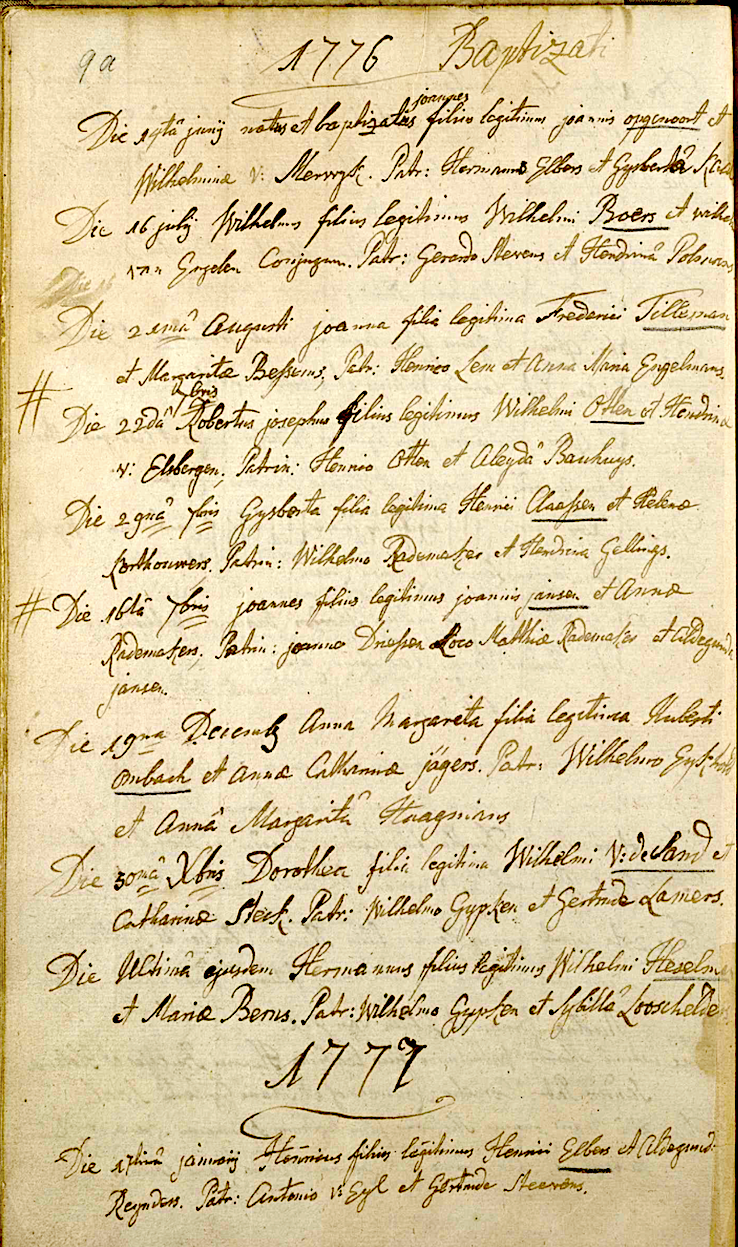 9a 1776 Baptizati
joannes
Die 19tâ junij natus et baptizatus filius legitimus joannis opgenoort et
Wilhelminæ v: Merwyk. Patr: Hermanno Elbers et Gysberta
Die 16 julij Wilhelmus filius legitimus Wilhelmi Boers et
van Engelen Conjugum. Patr: Gerardo Stevens et Hendrinâ
Die 16
Die 21mâ Augusti joanna filia legitima Frederici Tilleman
et Margaritæ Bessems, Patr: Henrico Lem et Anna Maria Engelmans.
# 7bris
Die 22dâ Robertus josephus filius legitimus Wilhelmi Otten et Hendrinæ
v: Elsbergen, Patrin: Henrico Otten et Aleydâ Bauhuys.
Die 29nâ 7bris Gysberta filia legitima Henrici Claessen et Helenæ
Korthouwers. Patrin: Wilhelmo Rademaker et Hendrina Gellings.
# Die 16tâ 7bris joannes filius legitimus joannis jansen et Annæ
Rademakers, Patrin: joanne Driessen Loco Matthiæ Rademaker et Aldegunda
jansen.
Die 19na Decemb Anna Margareta filia legitima Huberti
Ombach et Annæ Catharinæ jägers. Patr: Wilhelmo
et Annâ Margaritâ Haagmans
Die 30mâ Xbris Dorothea filia legitima Wilhelmi V: de Sand et
Catharinæ Steck. Patr: Wilhelmo Gypken et Gertrude Lamers.
Die Ultimâ ejusdem Hermannus filius legitimus Wilhelmi
et Mariæ Berns. Patr: Wilhelmo Gypken et Sybillâ
1777
Die januarij Henricus filius legitimus Henrici Elbers et Aldegund:
Reynders. Patr: Antonio v: Eyl et Gertrude Steevens.